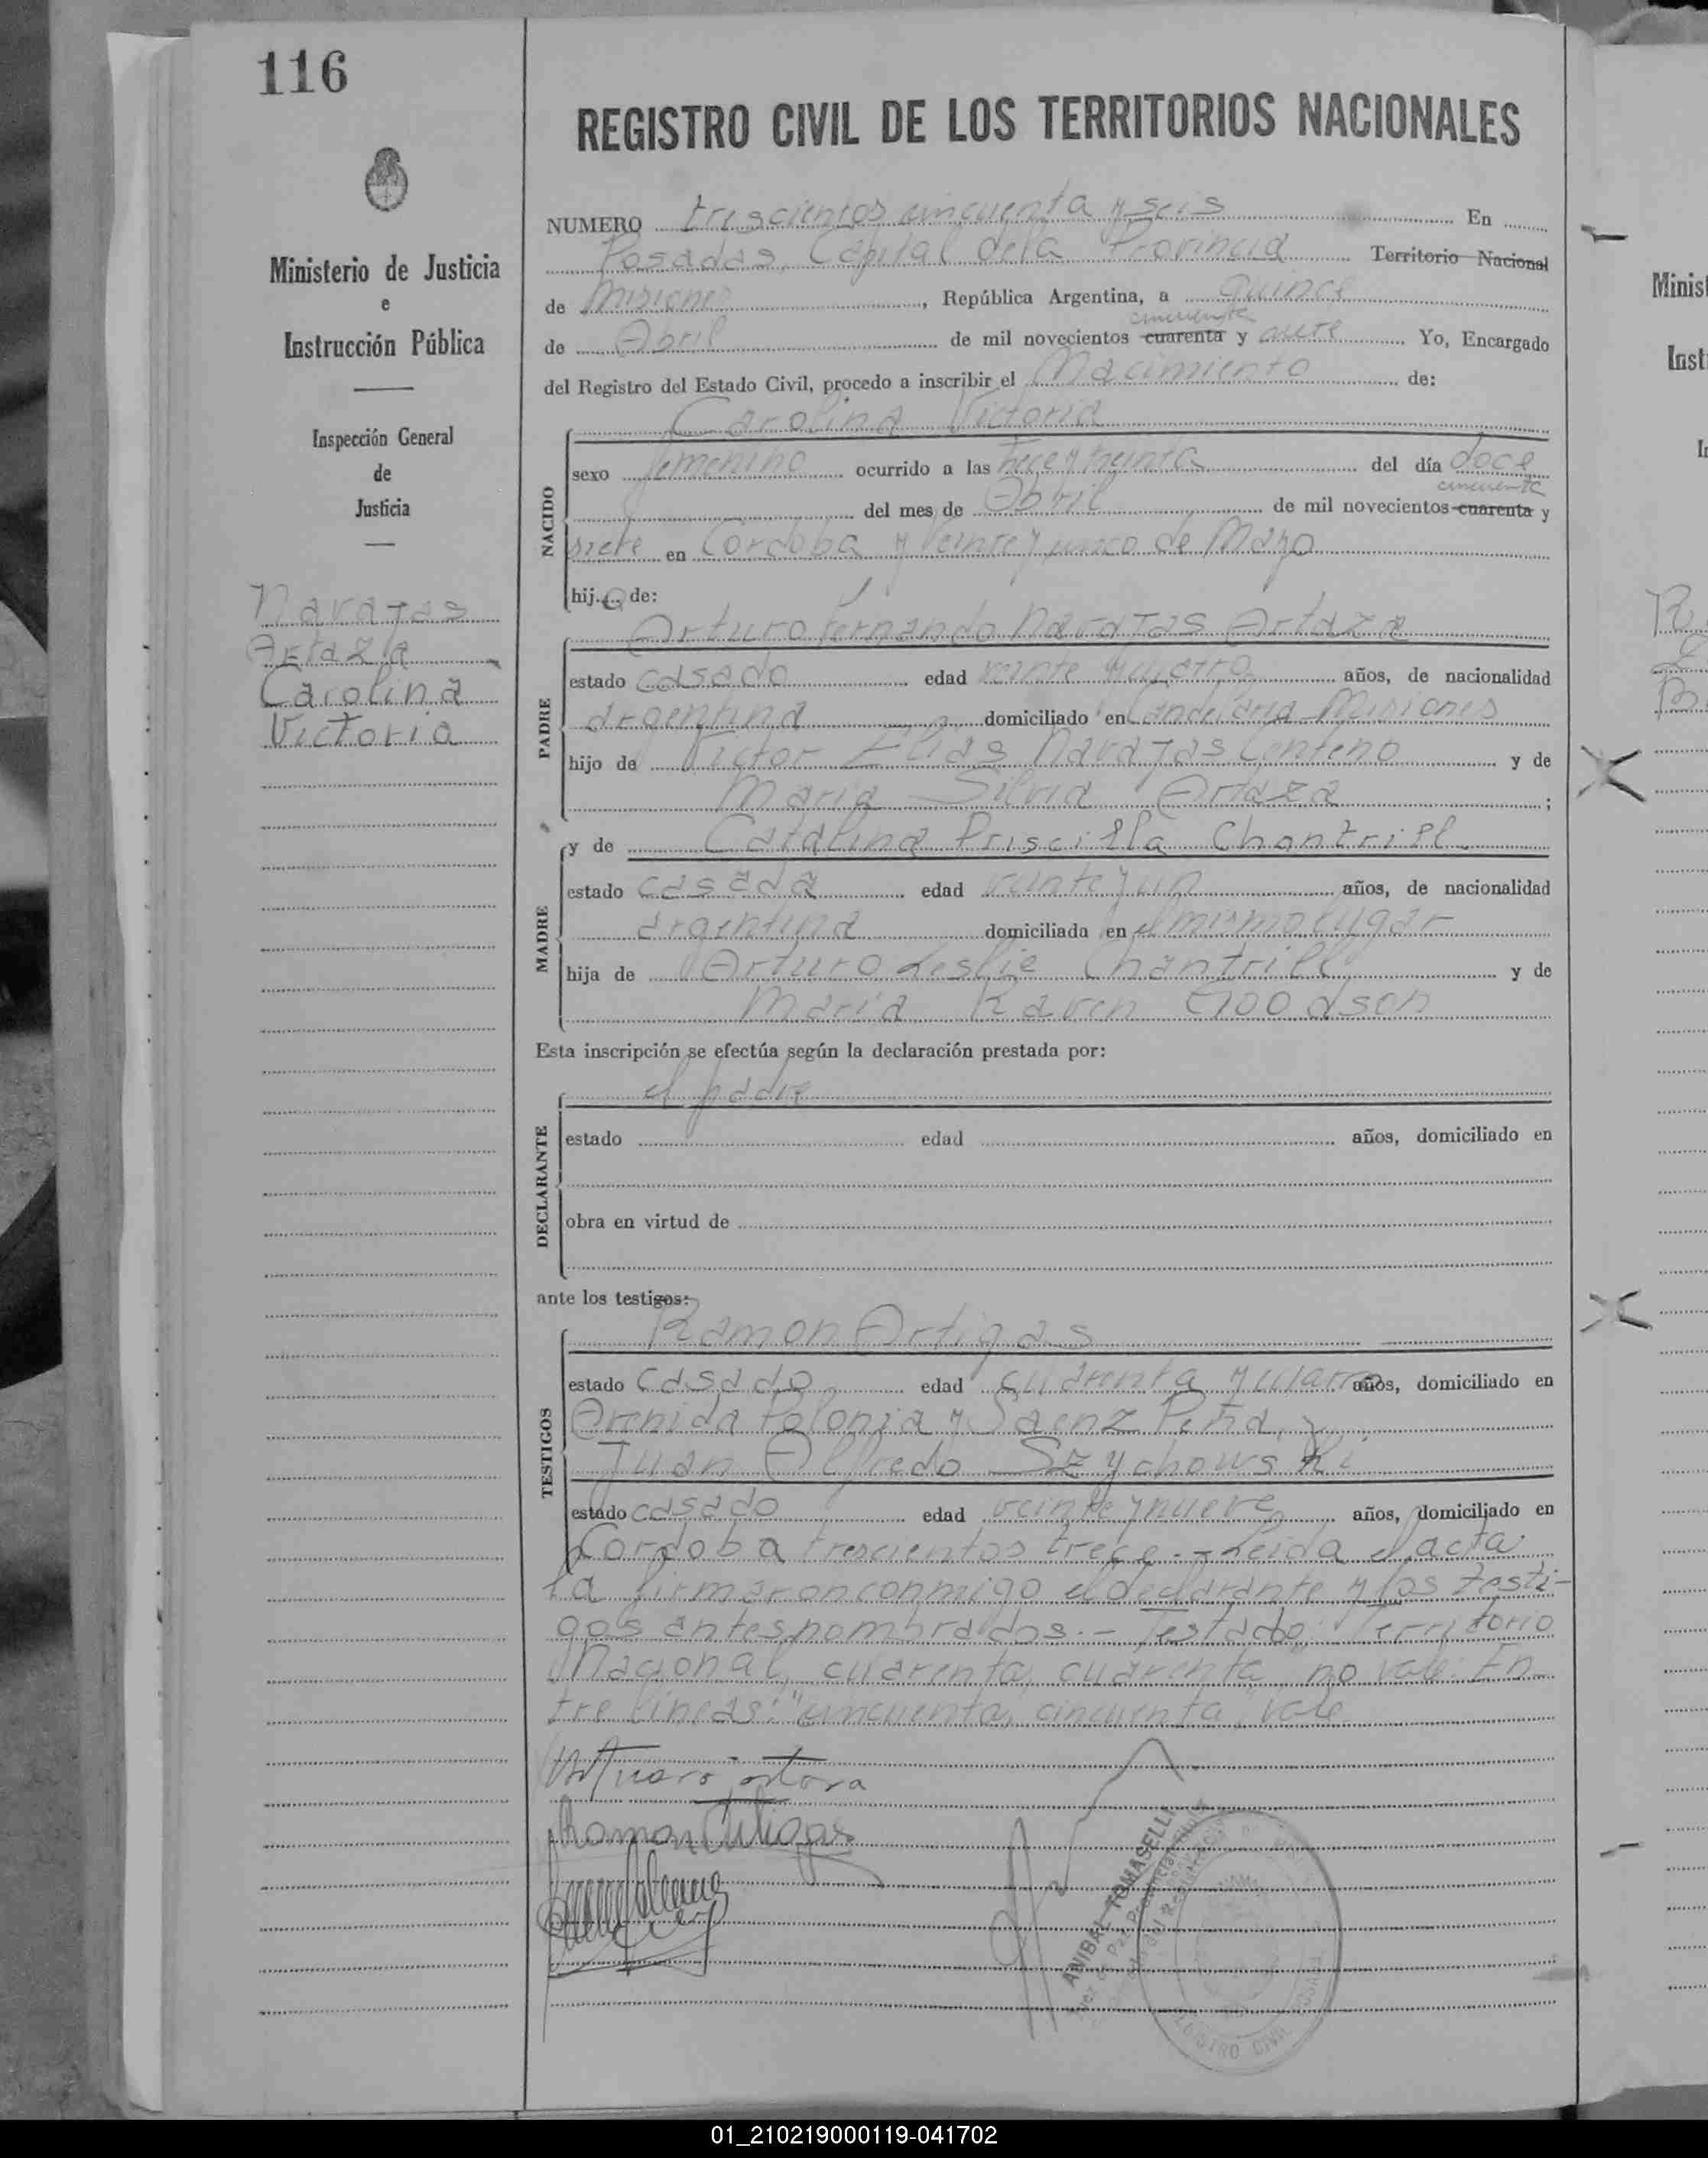 116
REGISTRO CIVIL DE LOS TERRITORIOS NACIONALES
Ministerio de Justicia
e
Instrucción Pública
Inspección General
de
Justicia
Navajas
Artaza
Carolina
Victoria
NUMERO trescientos cincuenta y seis En
Posadas, Capital de la Provincia Territorio Nacional
de Misiones, República Argentina, a Quince
cincuenta
de Abril de mil novecientos cuarenta y siete Yo, Encargado
del Registro del Estado Civil, procedo a inscribir el Nacimiento de:
Carolina Victoria
NACIDO
sexo femenino ocurrido a las trece y treinta del día doce
cincuenta
del mes de Abril de mil novecientos cuarenta y
siete en Córdoba y Veinte y cinco de Mayo
hija de:
Arturo Fernando Navajas Artaza
PADRE
estado casado edad veinte y cuatro años, de nacionalidad
argentina domiciliado en Candelaria Misiones
hijo de Victor Elías Navajas Centeno y de
Maria Silvia Artaza;
y de Catalina Priscilla Chantrill
MADRE
estado casada edad veinte y un años, de nacionalidad
argentina domiciliada en el mismo lugar
hija de Arturo Leslie Chantrill y de
Maria Raven Goodson
Esta inscripción se efectúa según la declaración prestada por:
el padre
DECLARANTE
estado edad años, domiciliado en
obra en virtud de
ante los testigos:
Ramon Artigas
TESTIGOS
estado casado edad cuarenta y cuatro años, domiciliado en
Avenida Polonia y Saenz Peña, y
Juan Alfredo Szychowski
estado casado edad veinte y nueve años, domiciliado en
Córdoba trescientos trece.- Leida el acta
la firmaron conmigo el declarante y los testi-
gos antes nombrados.- Testado: Territorio
Nacional, cuarenta, cuarenta, no vale. En-
tre lineas: "cincuenta, cincuenta", vale
Ramon Artigas
ANIBAL TOMASELLI
Juez de Paz
REGISTRO CIVIL
Minis
Inst
01_210219000119-041702